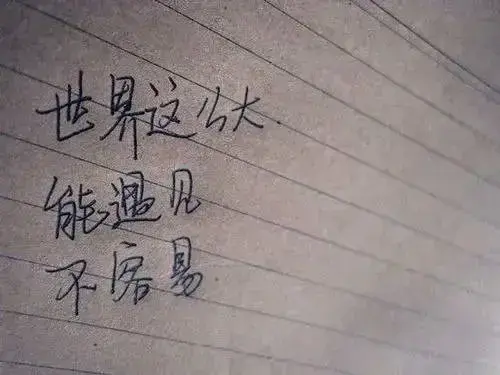 世界这么大.
能遇见
不容易